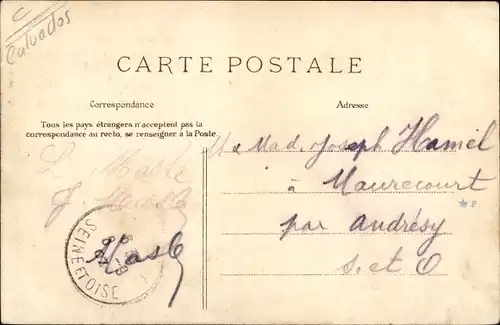 C
Calvados
CARTE POSTALE
Correspondance
Tous les pays étrangers n'acceptent pas la
correspondance au recto, se renseigner à la Poste.
Adresse
Mad. Joseph Hamel
à
Maurecourt
par Andrésy
S. et O
SEINE ET OISE